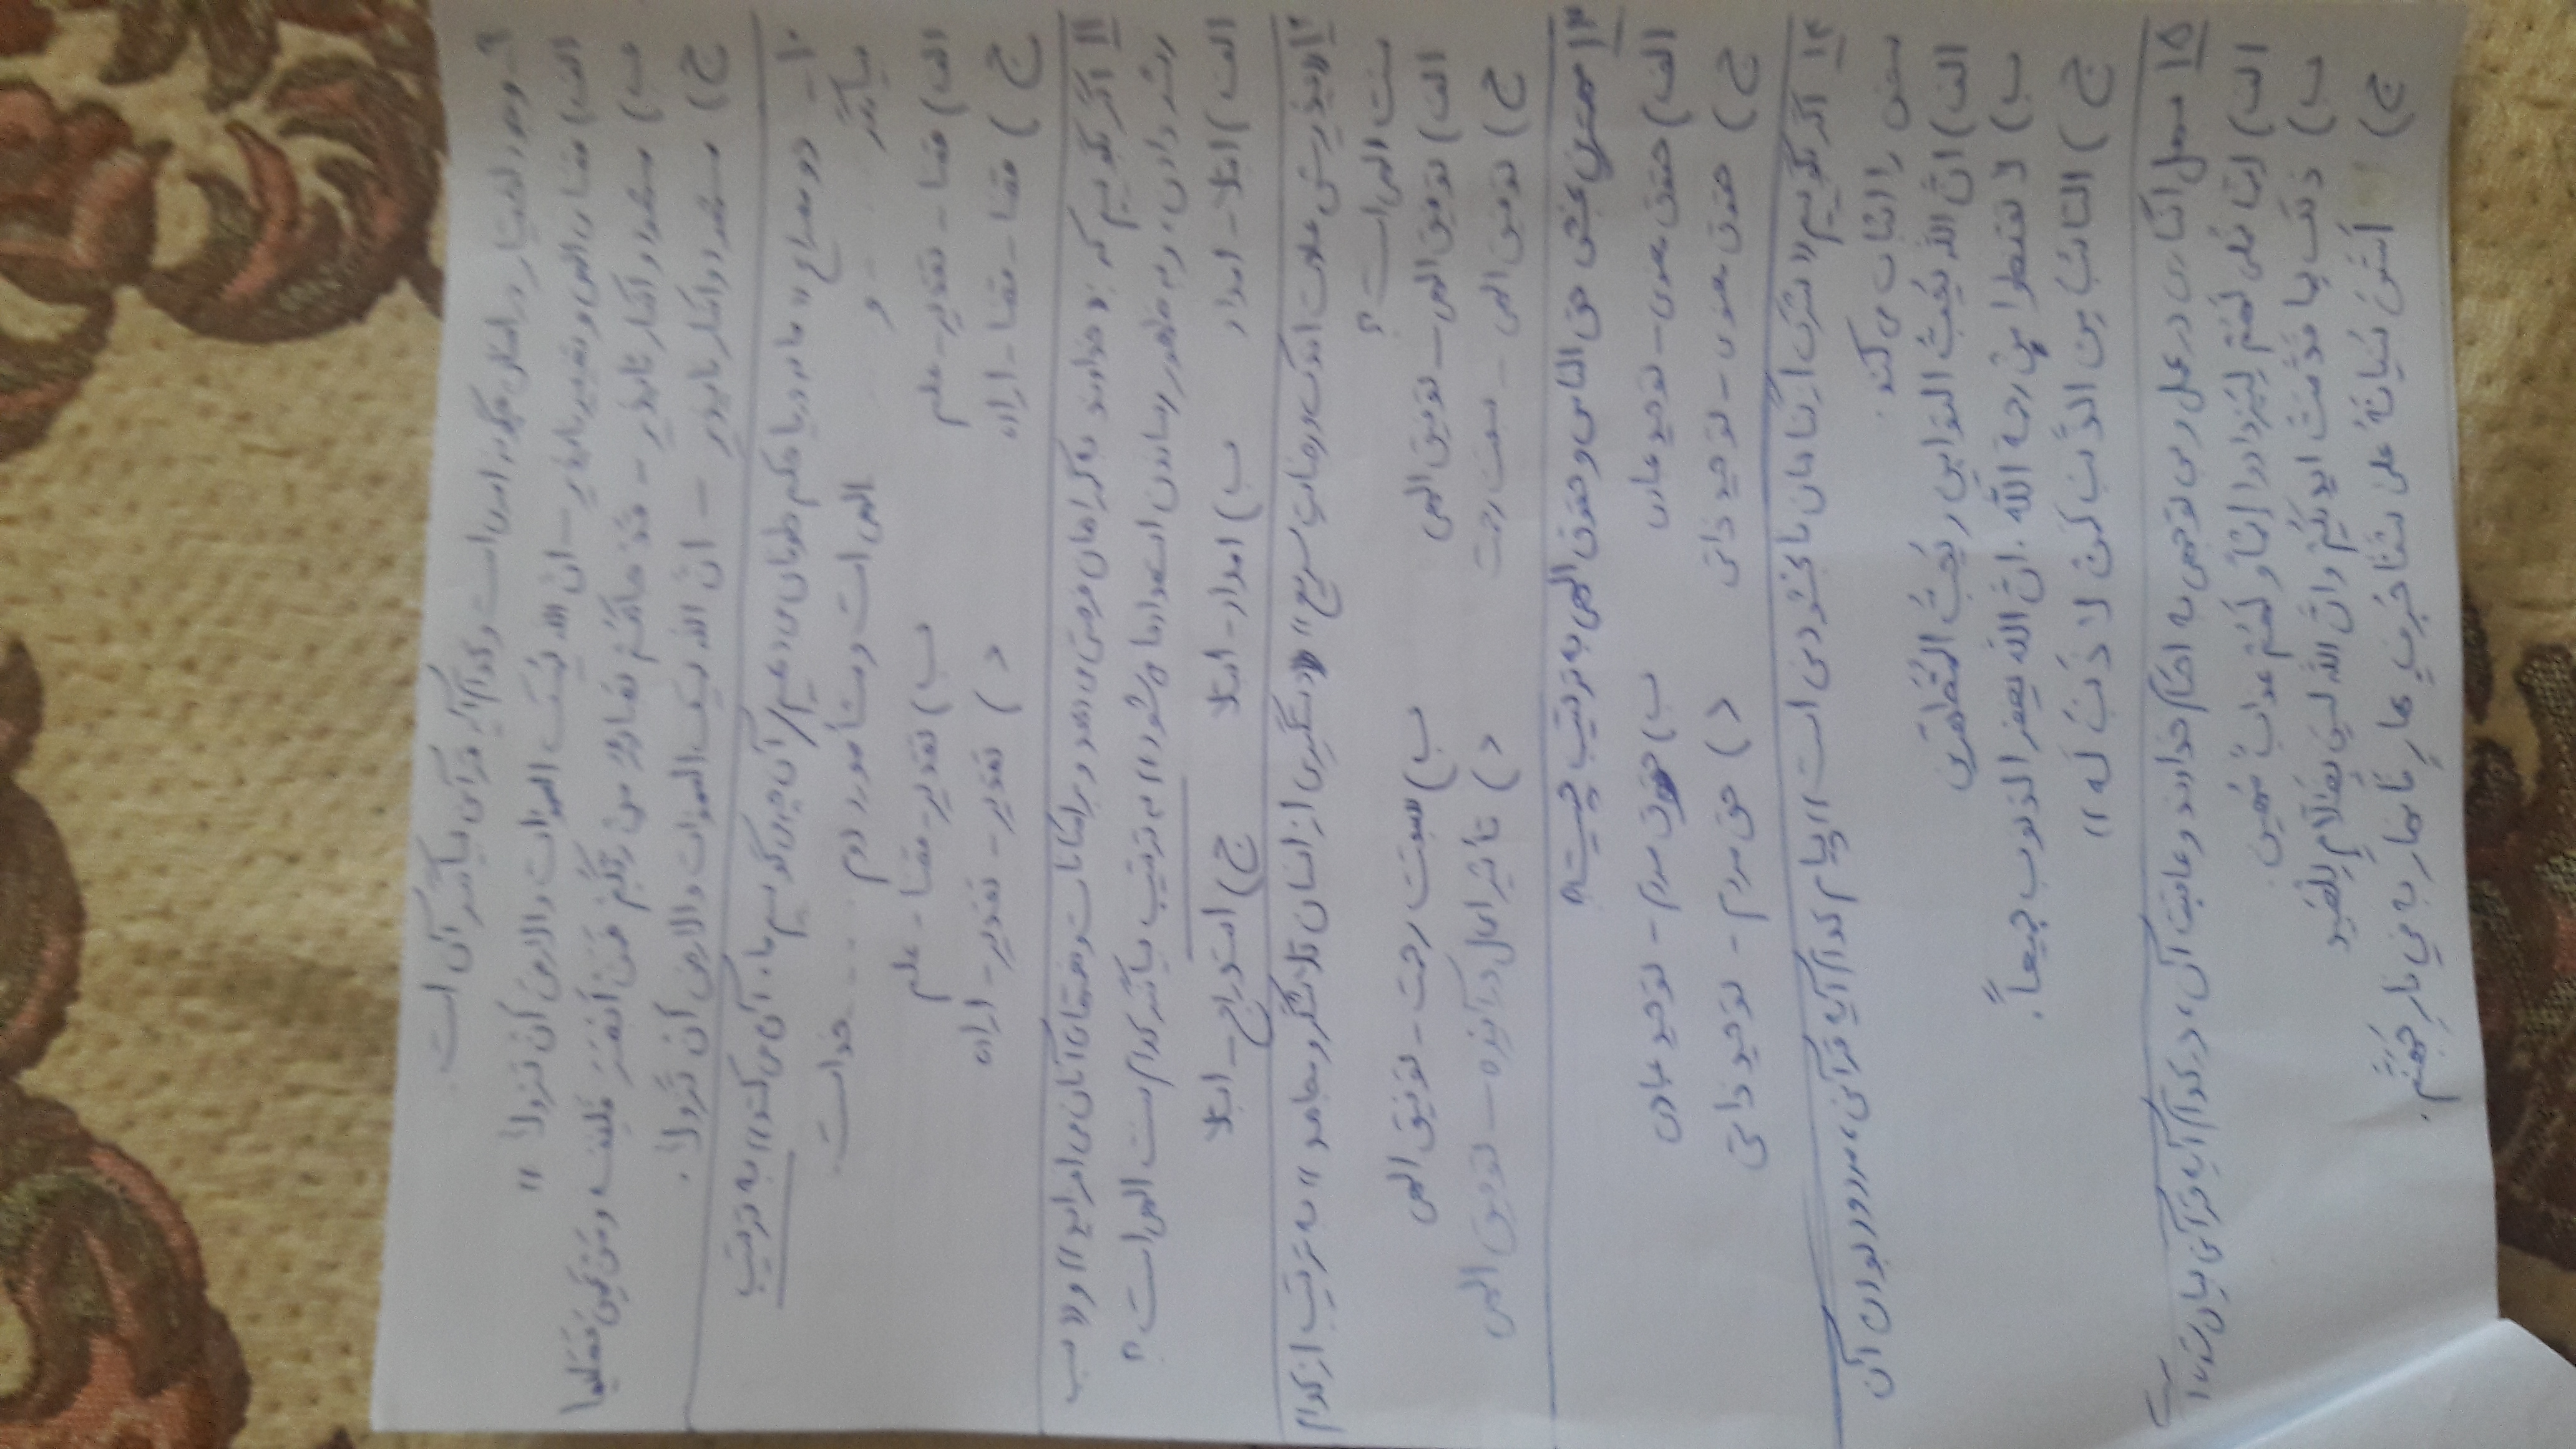 ۹- وجود اختیار در انسان چگونه امری است و کدام آیه قرآنی بیانگر آن است
الف) قضای الهی و تغییرناپذیر - ان الله یمسک السموات والارض أن تزولا »
ب) مشهود و انکارناپذیر - قد جاءکم بصائر من ربکم فمن أبصر فلنفسه و من عمی فعلیها
ج) مشهود و انکارناپذیر - انّ الله یمسک السموات والارض أن تزولا .
۱۰- دو مصراع « ما به دریا حکم طوفان می دهیم / آن چه می گوییم ما، آن می کند» به ترتیب
بیانگر ..... و ..... الهی است و منشأ مورد دوم ..... خداست.
الف) قضا - تقدیر - علم ب) تقدیر - قضا - علم
ج) قضا - قضا - اراده د) تقدیر - تقدیر - اراده
۱۱ اگر بگوییم که : « خداوند به گمراهان فرصتی می دهد و بر امکانات و نعمتهای آنان می افزاید» و « سبب
رشد دادن، و به ظهور رساندن استعدادها می شود» به ترتیب بیانگر کدام سنت الهی است؟
الف) ابتلا - امداد ب) امداد - ابتلا ج) استدراج - ابتلا
۱۲ «پذیرش عبادت اندک و رضایت سریع» «دستگیری از انسان تلاشگر و مجاهد» به ترتیب از کدام
سنت الهی است؟
الف) توفیق الهی - توفیق الهی ب) سبقت رحمت - توفیق الهی
ج) توفیق الهی - سبقت رحمت د) تأثیر اعمال در آینده - توفیق الهی
۱۳ مهمترین بخش حق الناس و حقوق الهی به ترتیب چیست؟
الف) حقوق معنوی - توحید عبادی ب) حقوق مردم - توحید عبادی
ج) حقوق معنوی - توحید ذاتی د) حق مردم - توحید ذاتی
۱۴ اگر بگوییم «شرک از گناهان نابخشودنی است» پیام کدام آیه قرآنی، مردود بودن آن
سخن را اثبات می کند.
الف) انّ اللّه یُحِبُّ التوابین و یُحِبُّ المُتَطَهّرین
ب) لا تقنطوا مِن رحمة اللّه . انّ اللّه یغفر الذنوب جمیعاً.
ج) التائبُ مِن الذَّنب کَمَن لا ذَنبَ لَه »
۱۵ سهل انگاری در عمل و بی توجهی به احکام خداوند و عاقبت آن، در کدام آیه قرآنی بیان شده است
الف) انّما نُملی لَهُم لِیَزدادوا إثماً و لَهُم عذابٌ مُهین.
ب) ذلک بِما قَدَّمَتْ ایدیکُم وانّ اللّه لیسَ بِظَلّامٍ لِلْعَبید
ج) أَسَّسَ بُنیانَهُ علی شَفا جُرُفٍ هارٍ فَانهارَ به فی نارِ جَهَنَّم.